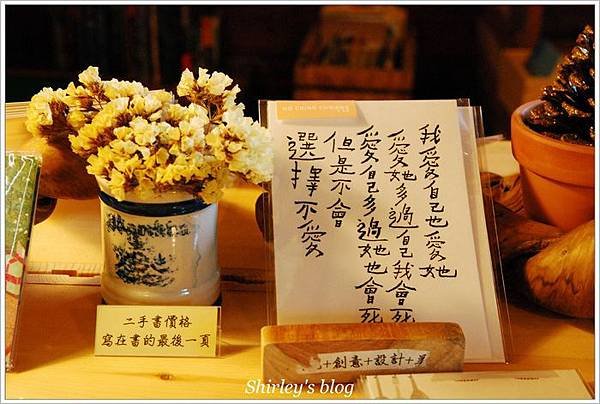 我愛自己也愛她
愛她多過自己我會死
愛自己多過她也會死
但是不會
選擇不愛
二手書價格
寫在書的最後一頁
+創意+設計+
Shirley's blog